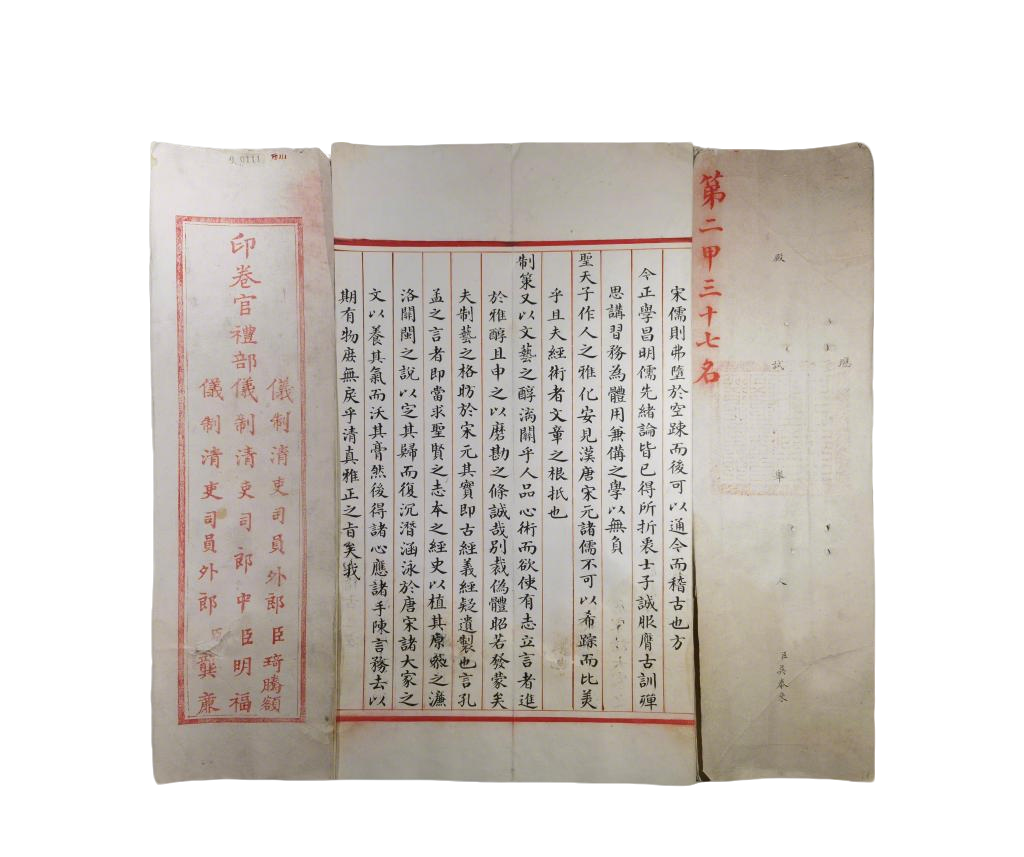 第二甲三十七名
應
殿試舉人臣吳奉來
宋儒則弗墮於空疎而後可以通今而稽古也方
今正學昌明儒先緒論皆已得所折衷士子誠服膺古訓殫
思講習務為體用兼備之學以無負
聖天子作人之雅化安見漢唐宋元諸儒不可以希踪而比美
乎且夫經術者文章之根抵也
制策又以文藝之醇漓關乎人品心術而欲使有志立言者進
於雅醇且申之以磨勘之條誠哉別裁偽體昭若發蒙矣
夫制藝之格昉於宋元其實即古經義經疑遺製也言孔
孟之言者即當求聖賢之志本之經史以植其原徵之濂
洛關閩之說以定其歸而復沉潛涵泳於唐宋諸大家之
文以養其氣而沃其膏然後得諸心應諸手陳言務去以
期有物庶無戾乎清真雅正之旨矣我
印卷官禮部
儀制清吏司員外郎臣琦騰額
儀制清吏司郎中臣明福
儀制清吏司員外郎臣龔廉
0111